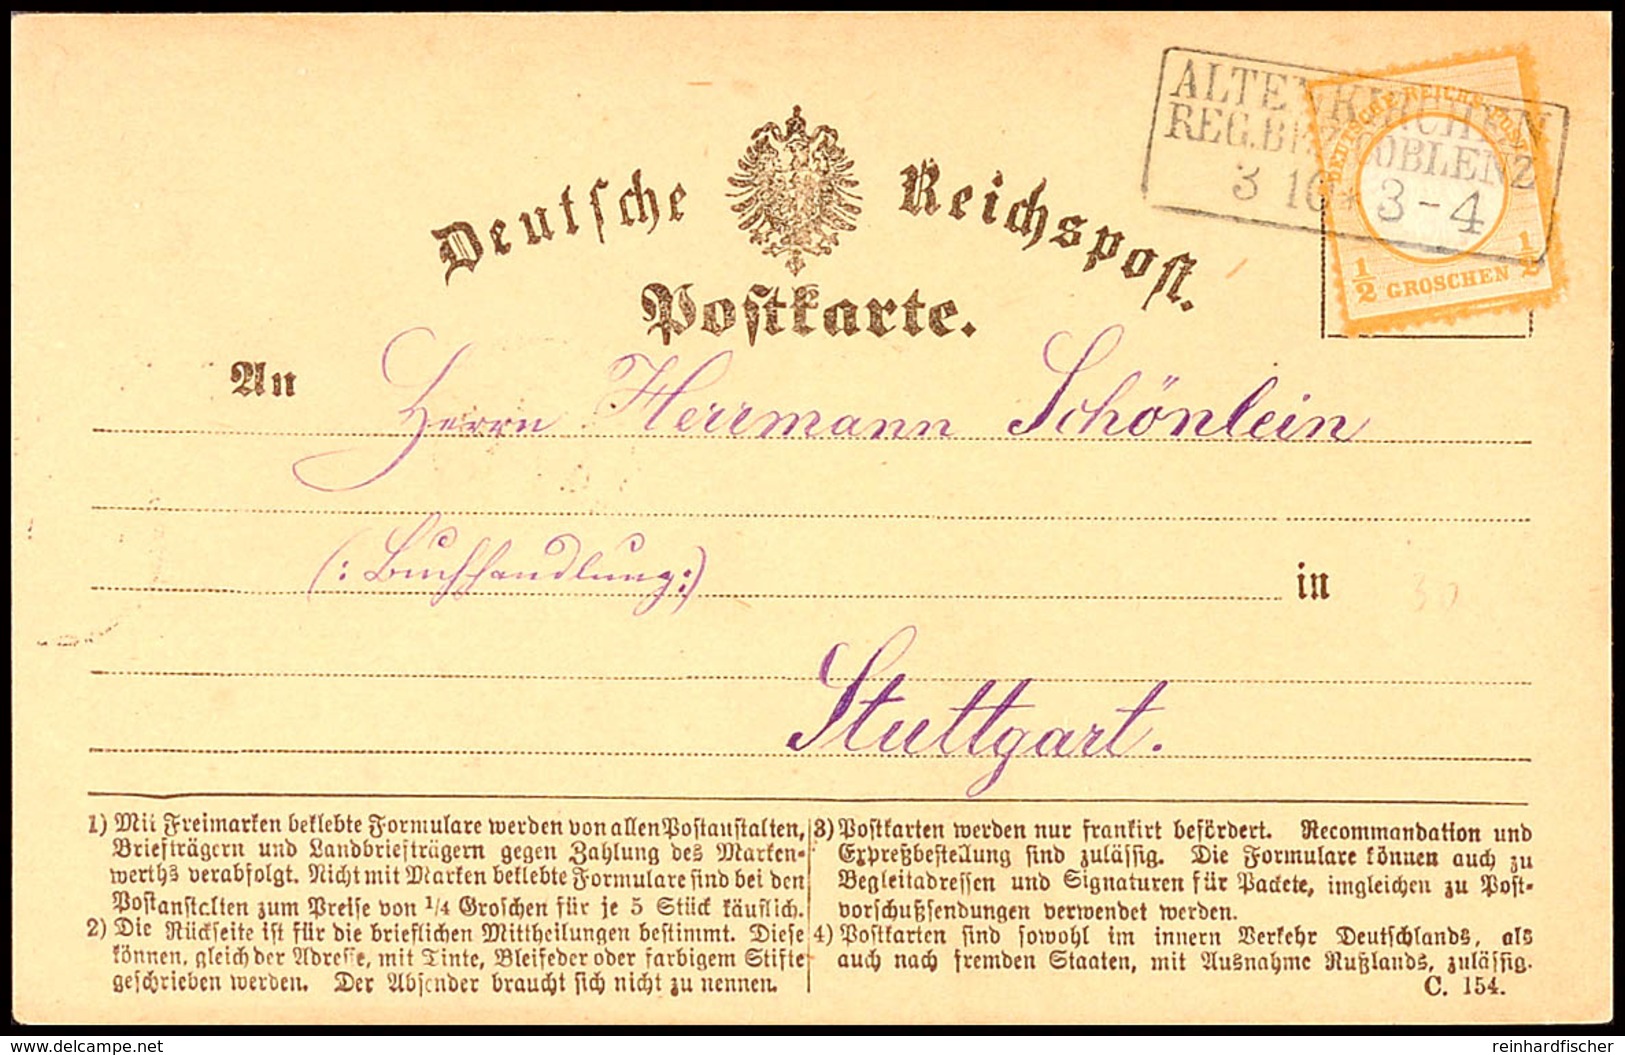 ALTENKIRCHEN
REG.BEZ.COBLENZ
3 10 3-4
DEUTSCHE REICHS-POST
1/2 GROSCHEN 1/2
Deutsche Reichspost.
Postkarte.
An Herrn Herrmann Schönlein
(: Buchhandlung :) in
30
Stuttgart.
1) Mit Freimarken beklebte Formulare werden von allen Postanstalten,
Briefträgern und Landbriefträgern gegen Zahlung des Marken-
werths verabfolgt. Nicht mit Marken beklebte Formulare sind bei den
Postanstalten zum Preise von 1/4 Groschen für je 5 Stück käuflich.
2) Die Rückseite ist für die brieflichen Mittheilungen bestimmt. Diese
können, gleich der Adresse, mit Tinte, Bleifeder oder farbigem Stifte
geschrieben werden. Der Absender braucht sich nicht zu nennen.
3) Postkarten werden nur frankirt befördert. Recommandation und
Expreßbestellung sind zulässig. Die Formulare können auch zu
Begleitadressen und Signaturen für Packete, imgleichen zu Post-
vorschußsendungen verwendet werden.
4) Postkarten sind sowohl im innern Verkehr Deutschlands, als
auch nach fremden Staaten, mit Ausnahme Rußlands, zulässig.
C. 154.
www.delcampe.net
reinhardfischer